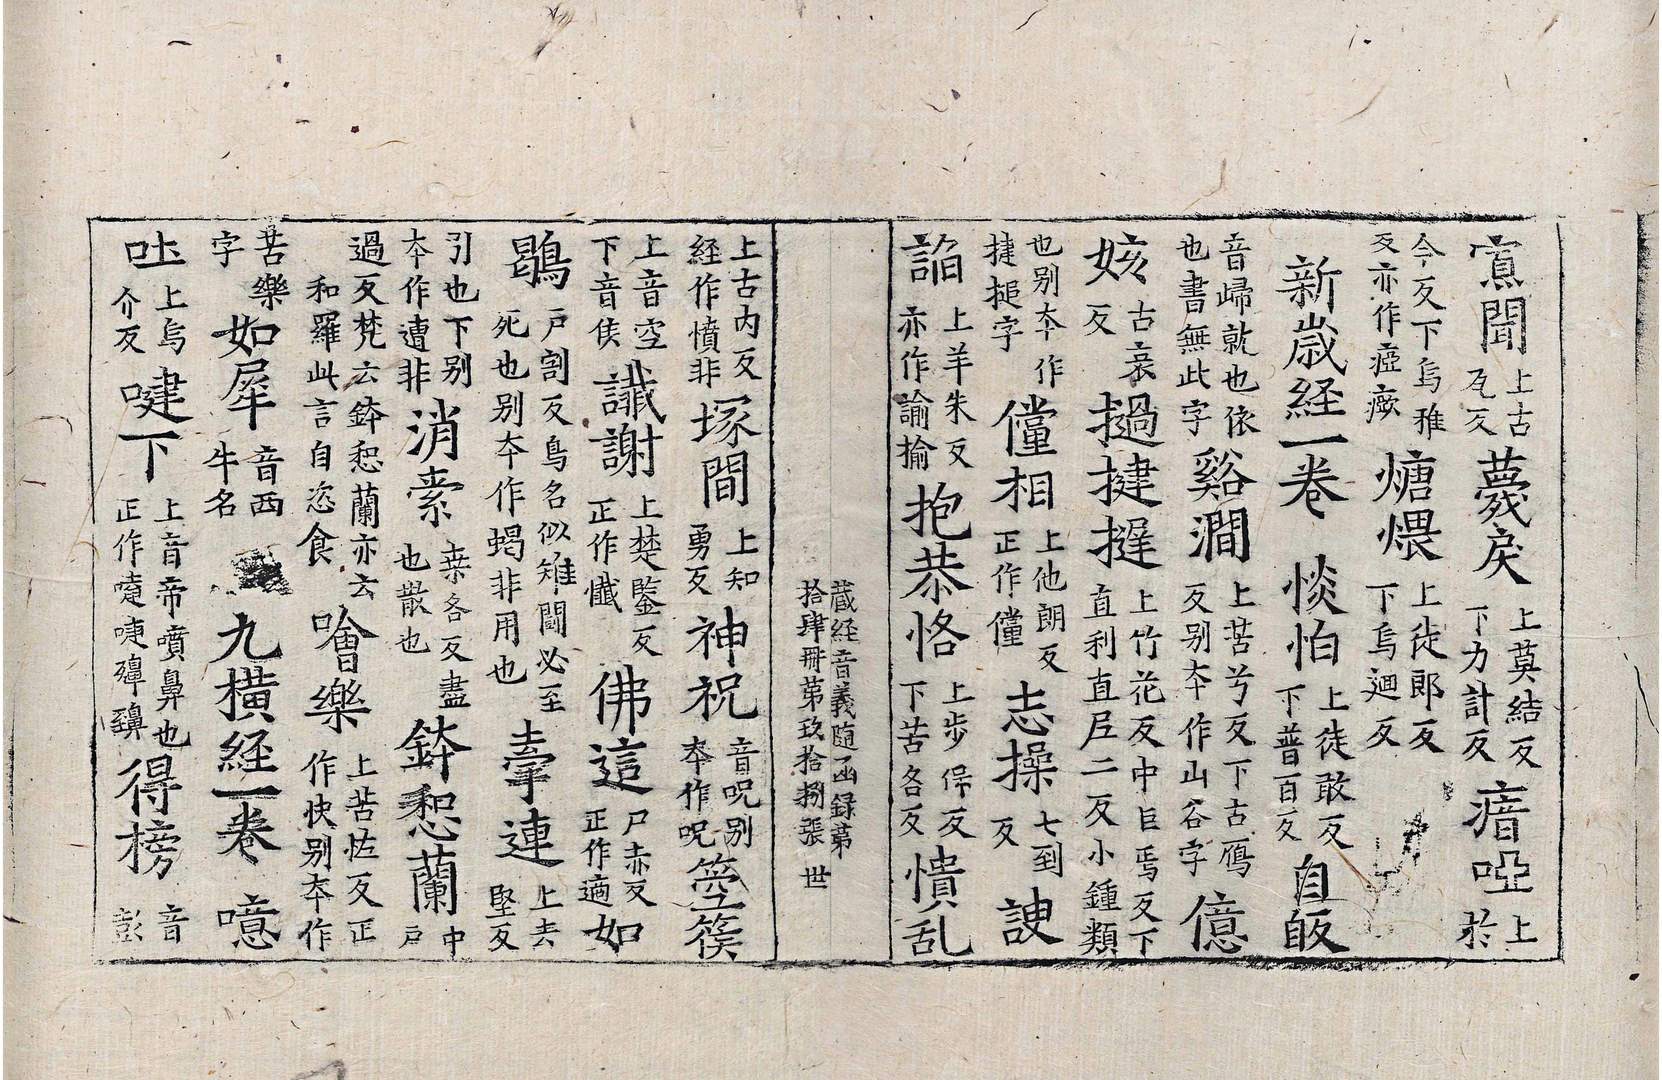 寡聞上古瓦反薎戾上莫結反下力計反瘖啞上於
今反下烏稚反亦作瘂瘚煻煨上徒郎反下烏廻反
新歲経一卷 惔怕上徒敢反下普百反自皈
音歸就也依也書無此字谿澗上苦兮反下古鴈反别夲作山谷字億
姟古哀反撾揵搥上竹花反中巨焉反下直利直尼二反小鍾類
也别夲作揵搥字儻相上他朗反正作儻志操七到反諛
諂上羊朱反亦作諭揄抱恭恪上步保反下苦各反憒乱
蔵経音義随函録第拾肆冊第玖拾捌張 世
上古内反経作憤非塚間上知勇反神祝音呪别夲作呪箜篌
上音空下音侯讖謝上楚鑒反正作懺佛這尸赤反正作適如
鶡戸割反鳥名似雉鬪必至死也别夲作蝎非用也牽連上去堅反
引也下别夲作遭非消索桒各反盡也散也鉢惒蘭中戸
過反梵云鉢惒蘭亦云和羅此言自恣食噲樂上苦恠反正作快别夲作
苦樂字如犀音西牛名 九横経一卷 噫
吐上烏介反啑下上音帝噴鼻也正作嚏得榜音彭